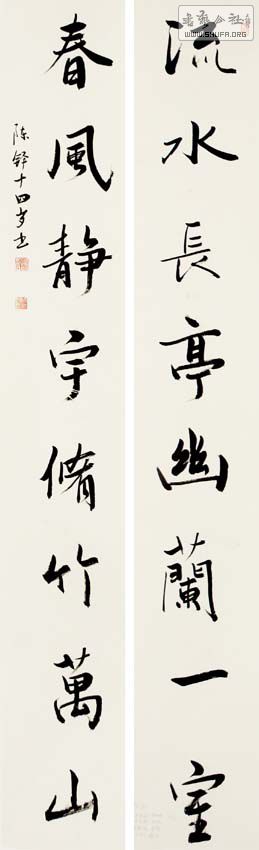 流水長亭幽蘭一室
春風静宇脩竹萬山
陈铎十四岁书
書藝公社
WWW.SHUFA.ORG